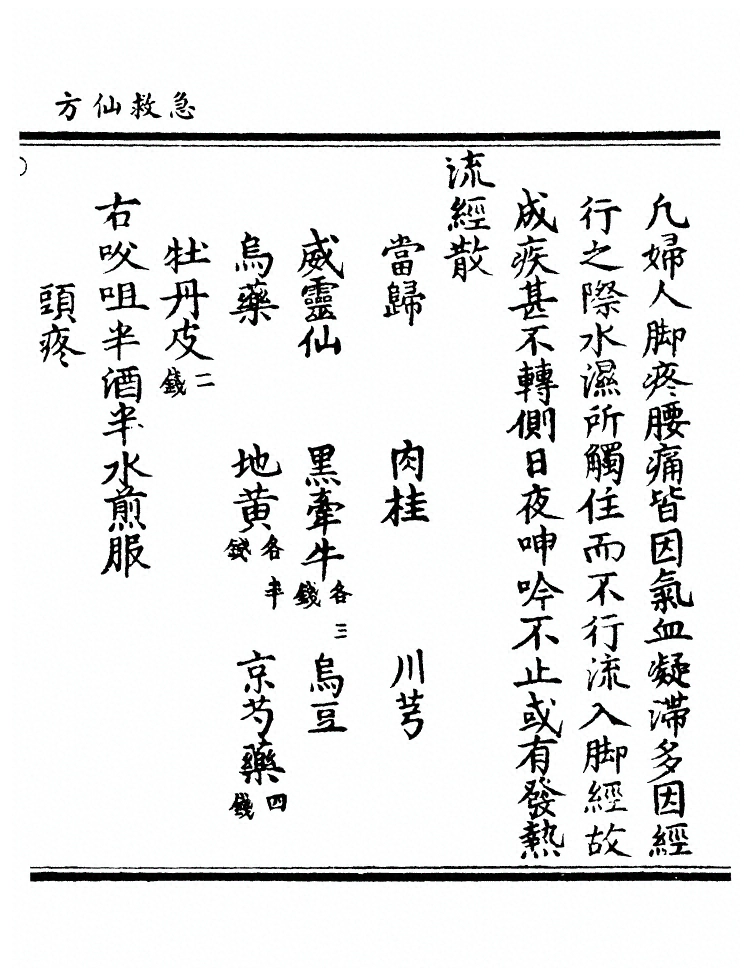 急救仙方
凡婦人脚疼腰痛皆因氣血凝滯多因經
行之際水濕所觸住而不行流入脚經故
成疾甚不轉側日夜呻吟不止或有發熱
流經散
當歸　肉桂　川芎
威靈仙　黒牽牛各三錢　烏豆
烏藥　地黄各半錢　京芍藥四錢
牡丹皮二錢
右㕮咀半酒半水煎服
頭疼